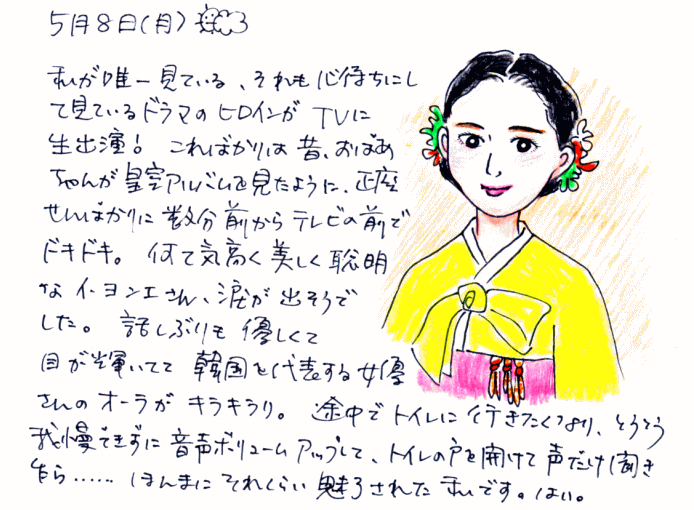 5月8日(月)
私が唯一見ている、それも心待ちにし
て見ているドラマのヒロインが TVに
生出演! こればかりは昔、おばあ
ちゃんが皇室アルバムを見たように、正座
せんばかりに数分前からテレビの前で
ドキドキ。何て気高く美しく聡明
なイ・ヨンエさん、涙が出そうで
した。話しぶりも優しくて
目が輝いてて 韓国を代表する女優
さんのオーラが キラキラリ。途中でトイレに行きたくなり、とうとう
我慢できずに音声ボリュームアップして、トイレの戸を開けて声だけ聞き
ながら…… ほんまにそれくらい魅了された私です。はい。